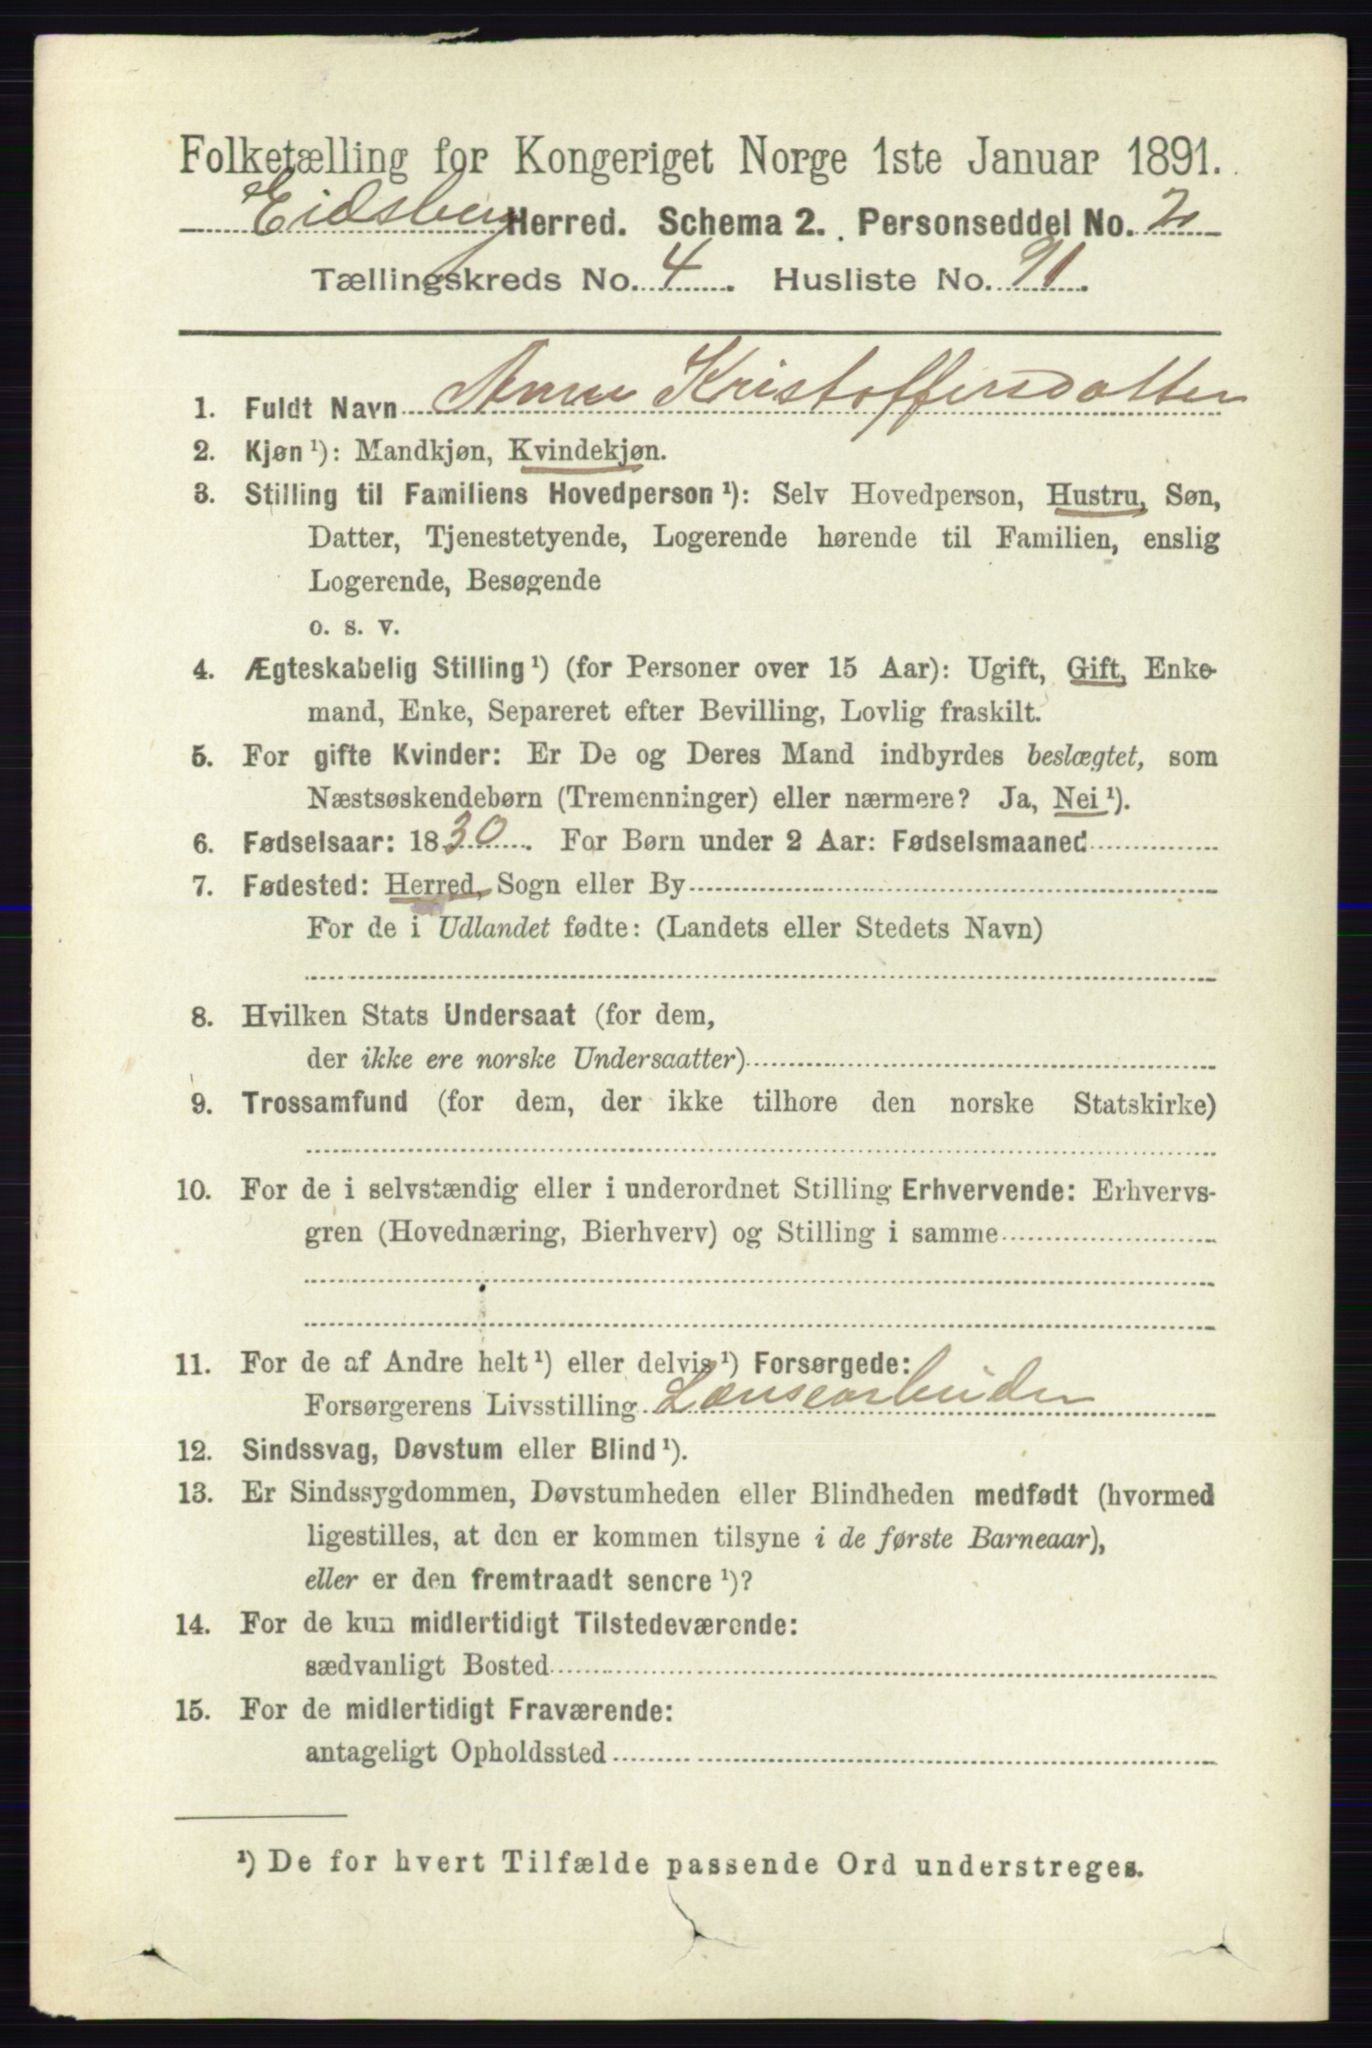 Folketælling for Kongeriget Norge 1ste Januar 1891.
Eidsberg Herred. Schema 2. Personseddel No. 2
Tællingskreds No. 4. Husliste No. 91.
1. Fuldt Navn Anne Kristoffersdatter
2. Kjøn ¹): Mandkjøn, Kvindekjøn.
3. Stilling til Familiens Hovedperson ¹): Selv Hovedperson, Hustru, Søn,
Datter, Tjenestetyende, Logerende hørende til Familien, enslig
Logerende, Besøgende
o. s. v.
4. Ægteskabelig Stilling ¹) (for Personer over 15 Aar): Ugift, Gift, Enke-
mand, Enke, Separeret efter Bevilling, Lovlig fraskilt.
5. For gifte Kvinder: Er De og Deres Mand indbyrdes beslægtet, som
Næstsøskendebørn (Tremenninger) eller nærmere? Ja, Nei ¹).
6. Fødselsaar: 1830. For Børn under 2 Aar: Fødselsmaaned
7. Fødested: Herred, Sogn eller By
For de i Udlandet fødte: (Landets eller Stedets Navn)
8. Hvilken Stats Undersaat (for dem,
der ikke ere norske Undersaatter)
9. Trossamfund (for dem, der ikke tilhore den norske Statskirke)
10. For de i selvstændig eller i underordnet Stilling Erhvervende: Erhvervs-
gren (Hovednæring, Bierhverv) og Stilling i samme
11. For de af Andre helt ¹) eller delvis ¹) Forsørgede:
Forsørgerens Livsstilling Lænsearbeider
12. Sindssvag, Døvstum eller Blind ¹).
13. Er Sindssygdommen, Døvstumheden eller Blindheden medfødt (hvormed
ligestilles, at den er kommen tilsyne i de første Barneaar),
eller er den fremtraadt senere ¹)?
14. For de kun midlertidigt Tilstedeværende:
sædvanligt Bosted
15. For de midlertidigt Fraværende:
antageligt Opholdssted
¹) De for hvert Tilfælde passende Ord understreges.